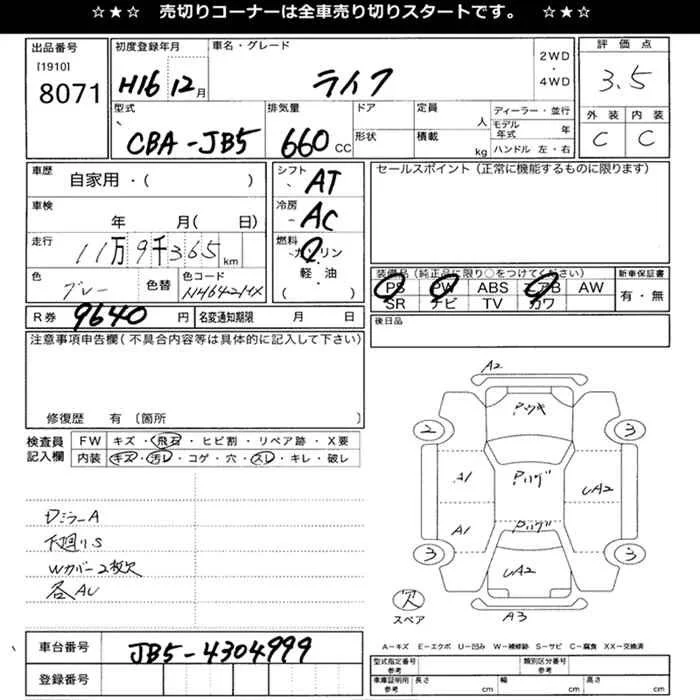 ☆★☆ 売切りコーナーは全車売り切りスタートです。 ☆★☆
出品番号
[1910]
8071
初度登録年月
H16 12月
車名・グレード
ライフ
2WD・4WD
評価点
3.5
外装 内装
C C
型式
CBA-JB5
排気量
660 CC
ドア
形状
定員
人
積載
kg
ディーラー・並行
モデル年式 年
ハンドル 左・右
車歴
自家用・( )
車検
年 月( 日)
走行
11万9千365km
色
グレー
色替
色コード
シフト
AT
冷房
AC
燃料
ガソリン
軽・油
( )
セールスポイント(正常に機能するものに限ります)
装備品(純正品に限り○をつけてください)
PS PW ABS エアB AW
SR ナビ TV カワ
新車保証書
有・無
R券 9640円
名変通知期限 月 日
後日品
注意事項申告欄(不具合内容等は具体的に記入して下さい)
修復歴 有〔箇所 〕
検査員記入欄
FW キズ・飛石・ヒビ割・リペア跡・X要
内装 キズ・汚レ・コゲ・穴・スレ・キレ・破レ
DミラーA
下廻りS
Wカバー2枚欠
各AU
A2
2
3
A1
A1
UA2
3
3
UA2
A3
欠
スペア
A-キズ E-エクボ U-凹み W-補修跡 S-サビ C-腐食 XX-交換済
車台番号
JB5-4304999
登録番号
型式指定番号 参考
類別区分番号 参考
車庫証明用 参考
長さ cm
幅 cm
高さ cm